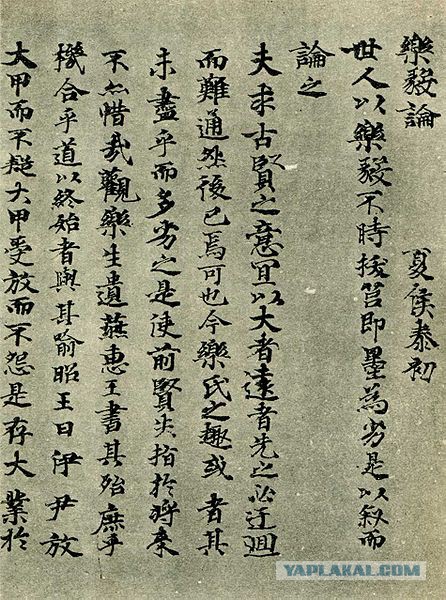 樂毅論 夏侯泰初
世人以樂毅不時拔莒即墨為劣是以叙而
論之
夫求古賢之意宜以大者遠者先之必迂迴
而難通然後已焉可也今樂氏之趣或者其
未盡乎而多劣之是使前賢失指於將來
不亦惜哉觀樂生遺燕惠王書其殆庶乎
機合乎道以終始者與其喻昭王曰伊尹放
大甲而不疑大甲受放而不怨是存大業於
YAPLAKAL.COM